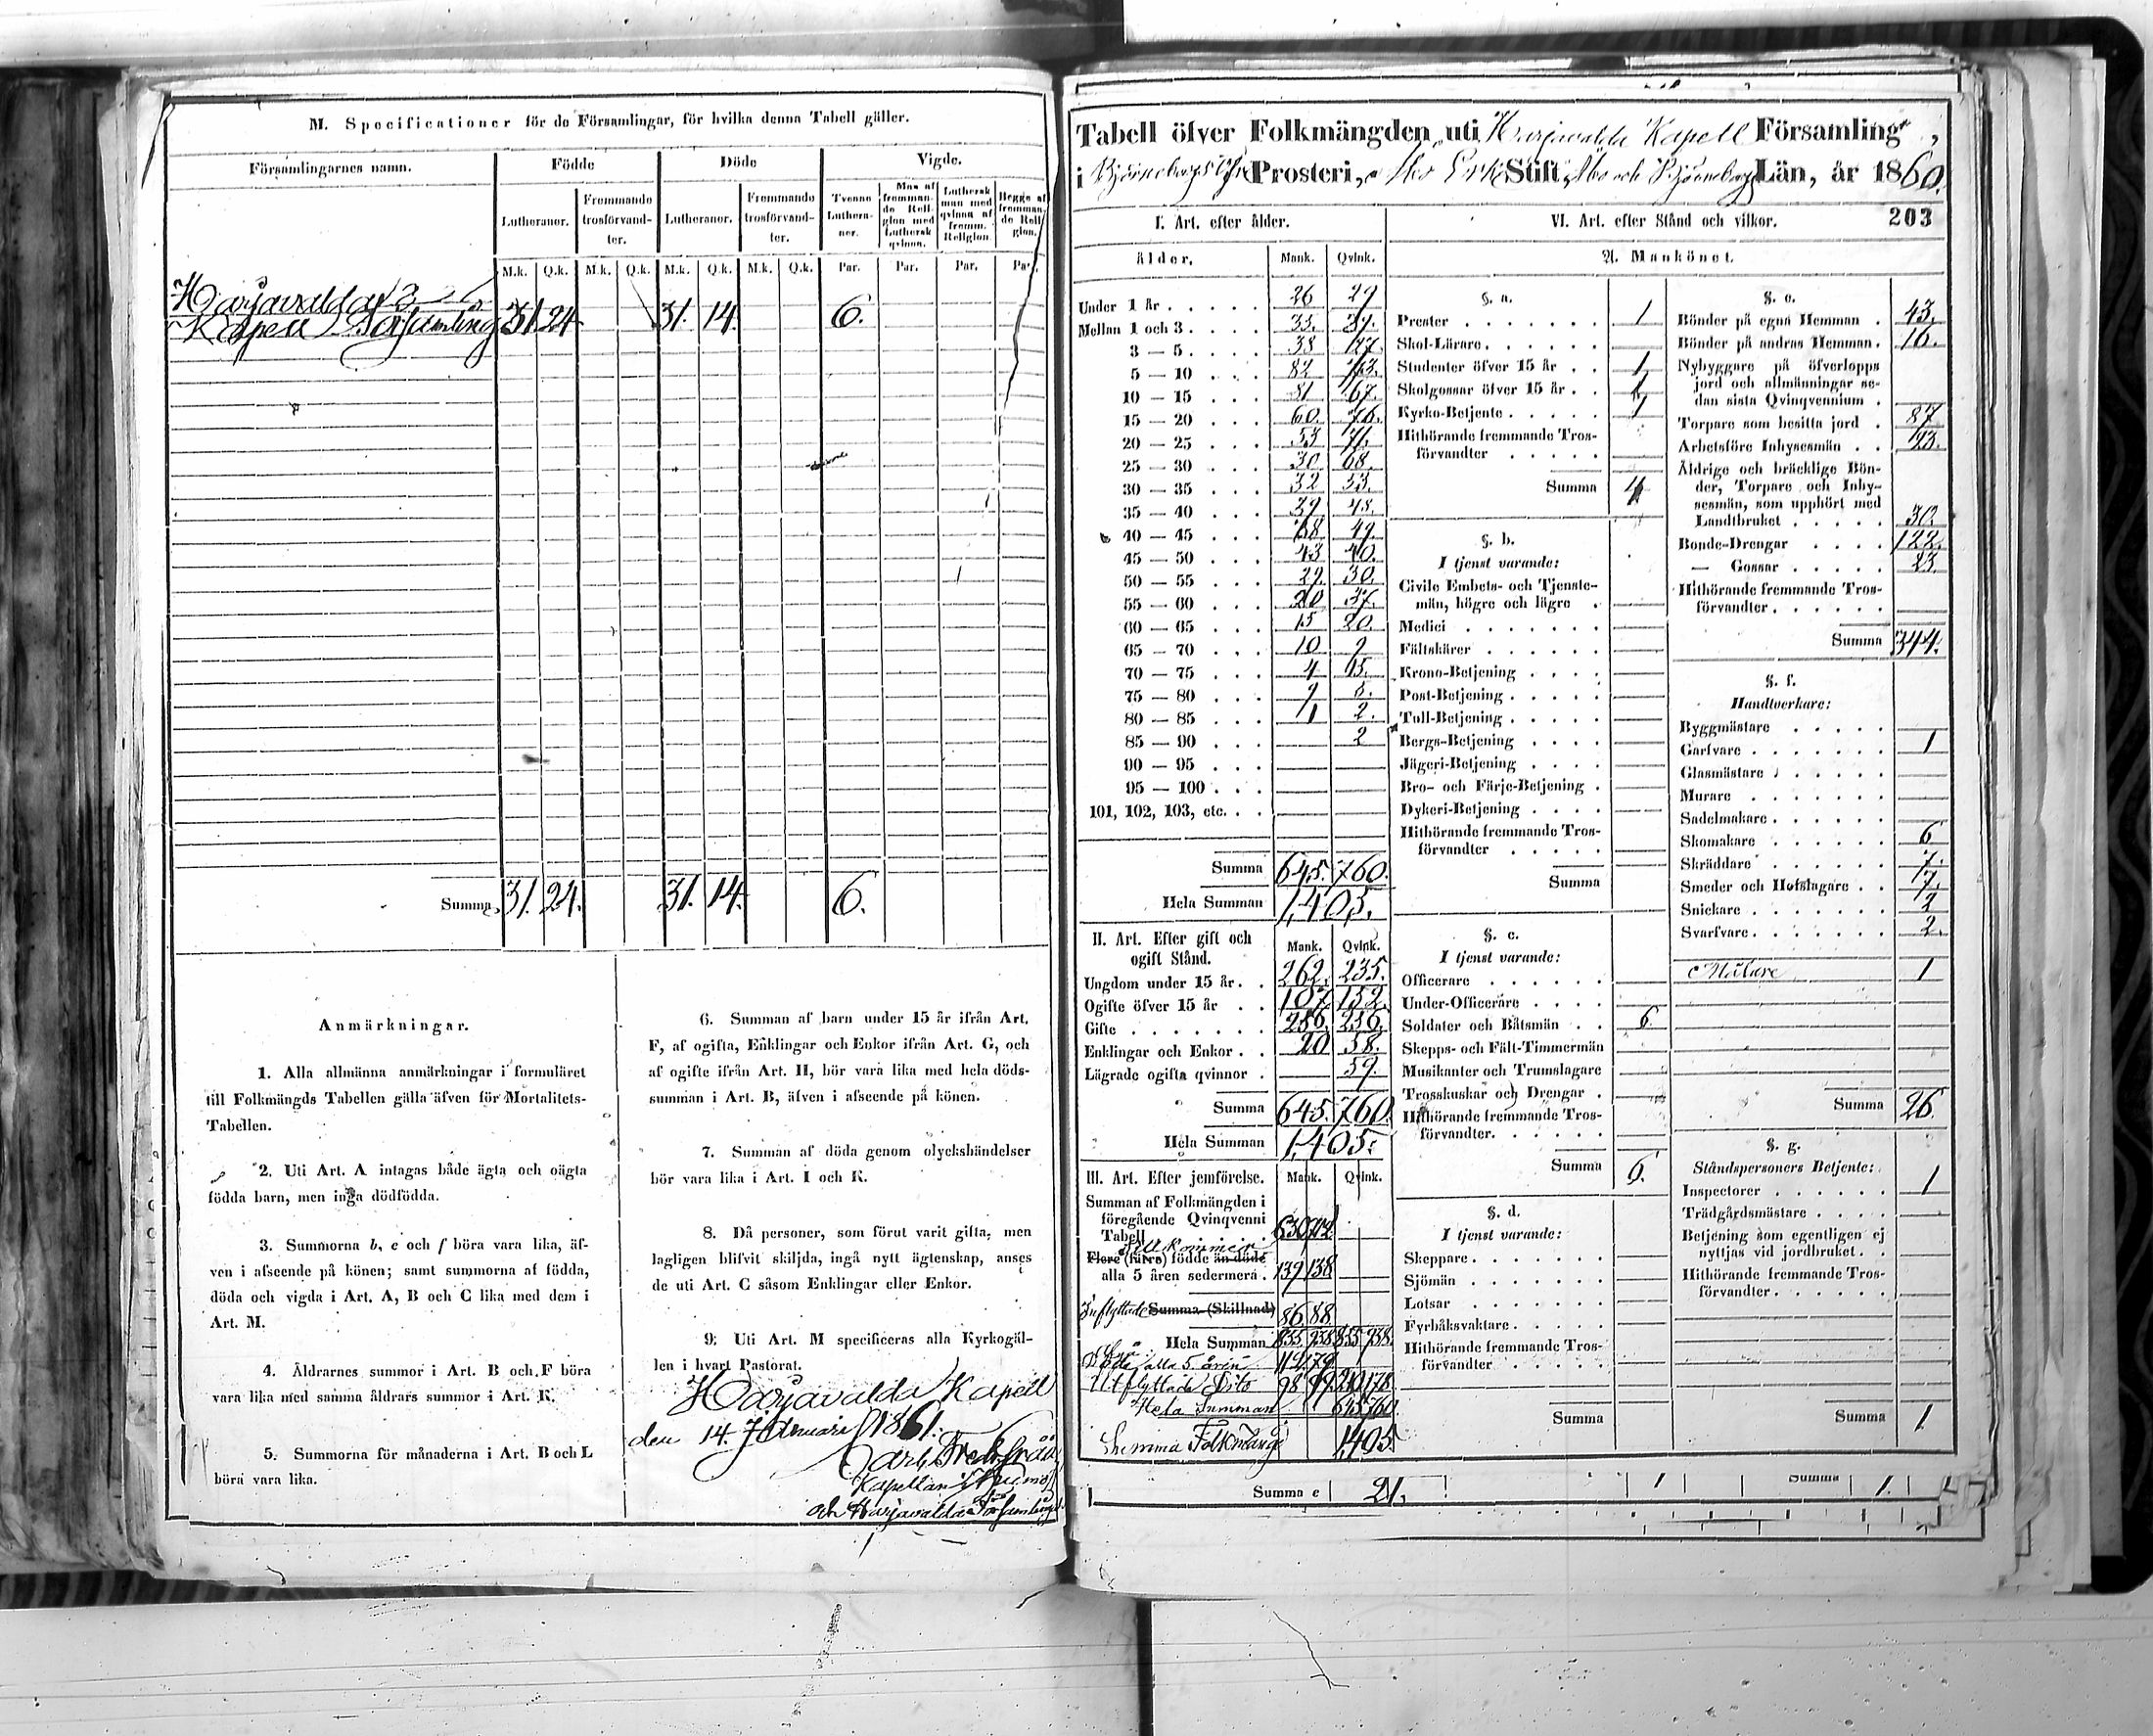 M. Specificationer för de Församlingar, för hvilka denna Tabell gäller.
Församlingarnes namn. Födde Döde Vigde.
Lutheraner. Fremmande trosförvandter. Lutheraner. Fremmande trosförvandter. Tvenne Lutheraner. Man af fremmande Religion med Luthersk qvinna. Luthersk man med qvinna af fremm. Religion. Begge af fremmande Religion.
M.k. Q.k. M.k. Q.k. M.k. Q.k. M.k. Q.k. Par. Par. Par. Par.
Harjavalda
Kapell Församling 31. 24. 31. 14. 6.
Summa 31. 24. 31. 14. 6.
Anmärkningar.
1. Alla allmänna anmärkningar i formuläret
till Folkmängds Tabellen gälla äfven för Mortalitets-
Tabellen.
2. Uti Art. A intagas både ägta och oägta
födda barn, men inga dödfödda.
3. Summorna b, e och f böra vara lika, äf-
ven i afseende på könen; samt summorna af födda,
döda och vigda i Art. A, B och C lika med dem i
Art. M.
4. Åldrarnes summor i Art. B och F böra
vara lika med samma åldrars summor i Art. K.
5. Summorna för månaderna i Art. B och L
böra vara lika.
6. Summan af barn under 15 år ifrån Art.
F, af ogifta, Enklingar och Enkor ifrån Art. G, och
af ogifte ifrån Art. H, bör vara lika med hela döds-
summan i Art. B, äfven i afseende på könen.
7. Summan af döda genom olyckshändelser
bör vara lika i Art. I och K.
8. Då personer, som förut varit gifta, men
lagligen blifvit skiljda, ingå nytt ägtenskap, anses
de uti Art. C såsom Enklingar eller Enkor.
9. Uti Art. M specificeras alla Kyrkogäl-
len i hvart Pastorat.
Harjavalda Kapell
den 14. Januari 1861.
Carl Fredr.
Kapellan i
och Harjavalda Församlingar
Tabell öfver Folkmängden uti Harjavalda Kapell Församling,
i Björneborgs Prosteri, Åbo Erk Stift, Åbo och Björneborgs Län, år 1860.
203
I. Art. efter ålder.
Ålder. Mank. Qvink.
Under 1 år 26 29
Mellan 1 och 3 35. 39.
3 — 5 38
5 — 10 82
10 — 15 81 67.
15 — 20 60. 76.
20 — 25 53 71.
25 — 30 30 68.
30 — 35 32 53.
35 — 40 39 48.
40 — 45 49.
45 — 50 43 40.
50 — 55 29. 30.
55 — 60 20 37.
60 — 65 15 20.
65 — 70 10 9
70 — 75 4 15.
75 — 80 9 8.
80 — 85 1 2.
85 — 90 2
90 — 95
95 — 100
101, 102, 103, etc.
Summa 645. 760.
Hela Summan 1,405.
II. Art. Efter gift och
ogift Stånd. Mank. Qvink.
Ungdom under 15 år 262. 235.
Ogifte öfver 15 år 107. 152.
Gifte 256. 256.
Enklingar och Enkor 20 58.
Lägrade ogifta qvinnor 59.
Summa 645. 760.
Hela Summan 1,405.
III. Art. Efter jemförelse. Mank. Qvink.
Summan af Folkmängden i
föregående Qvinqvenni
Tabell 630 712
Tillkommer
Flere (färre) födde än döde
alla 5 åren sedermera 139 138
Inflyttade Summa (Skillnad) 86 88
Hela Summan 855 938 855 938.
Döda alla 5 åren 112 79
Utflyttade Dito 98 99 210 178
Hela Summan 645 760
Summa Folkmängd 1,405.
VI. Art. efter Stånd och vilkor.
A. Mankönet.
§. a.
Prester 1
Skol-Lärare
Studenter öfver 15 år 1
Skolgossar öfver 15 år 1
Kyrko-Betjente 1
Hithörande fremmande Tros-
förvandter
Summa 4
§. b.
I tjenst varande:
Civile Embets- och Tjenste-
män, högre och lägre
Medici
Fältskärer
Krono-Betjening
Post-Betjening
Tull-Betjening
Bergs-Betjening
Jägeri-Betjening
Bro- och Färje-Betjening
Dykeri-Betjening
Hithörande fremmande Tros-
förvandter
Summa
§. c.
I tjenst varande:
Officerare
Under-Officerare
Soldater och Båtsmän 6
Skepps- och Fält-Timmermän
Musikanter och Trumslagare
Trosskuskar och Drengar
Hithörande fremmande Tros-
förvandter.
Summa 6.
§. d.
I tjenst varande:
Skeppare
Sjömän
Lotsar
Fyrbåksvaktare
Hithörande fremmande Tros-
förvandter
Summa
§. e.
Bönder på egna Hemman 43.
Bönder på andras Hemman 16.
Nybyggare på öfverlopps
jord och allmänningar se-
dan sista Qvinqvennium
Torpare som besitta jord 87
Arbetsföre Inhysesmän 23.
Åldrige och bräcklige Bön-
der, Torpare och Inhy-
sesmän, som upphört med
Landtbruket 30.
Bonde-Drengar 122.
— Gossar 23.
Hithörande fremmande Tros-
förvandter
Summa 344.
§. f.
Handtverkare:
Byggmästare
Garfvare 1
Glasmästare
Murare
Sadelmakare
Skomakare 6
Skräddare 7.
Smeder och Hofslagare 7.
Snickare 2
Svarfvare 2.
Målare 1
Summa 26.
§. g.
Ståndspersoners Betjente:
Inspectorer 1
Trädgårdsmästare
Betjening som egentligen ej
nyttjas vid jordbruket.
Hithörande fremmande Tros-
förvandter
Summa 1.
Summa e 21. 1 Summa 1.